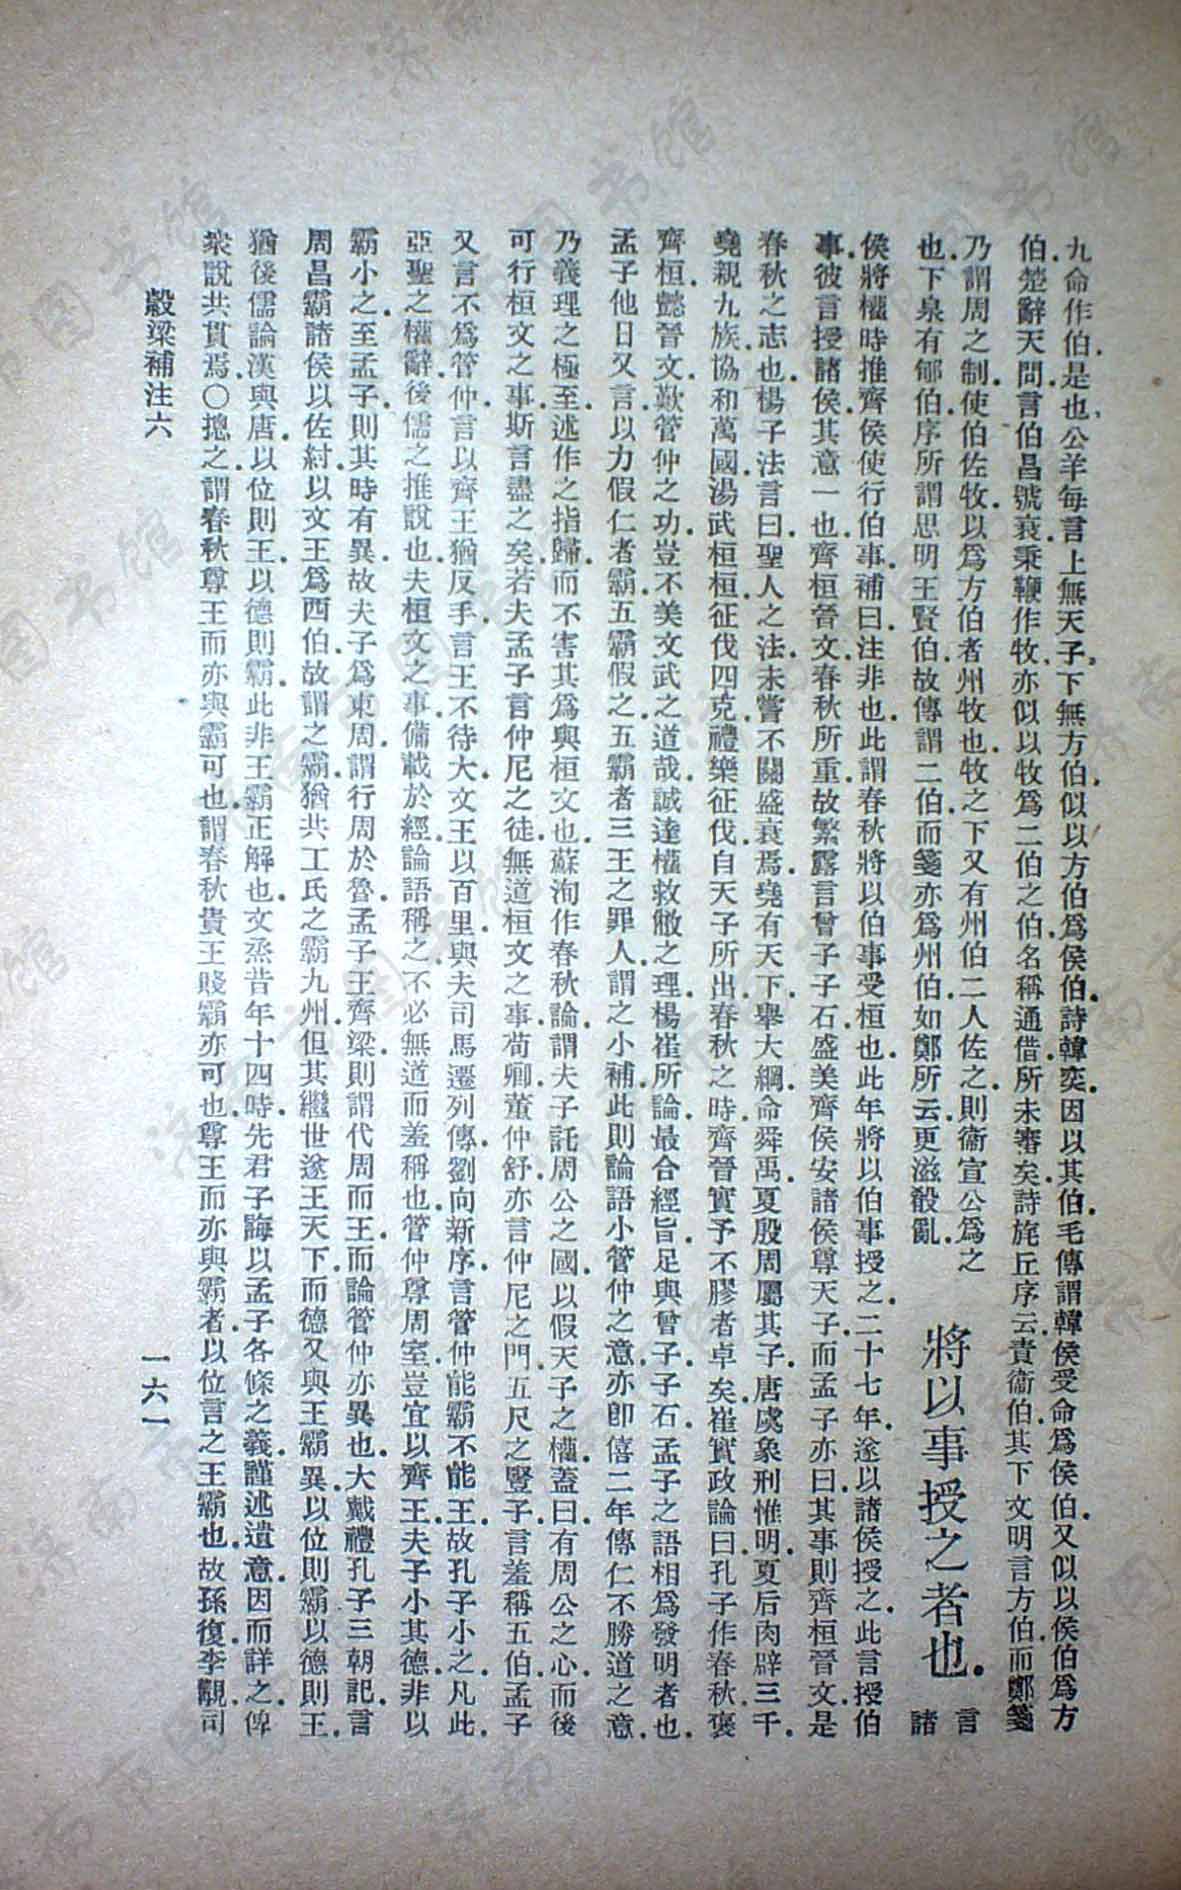 九命作伯是也公羊每言上無天子下無方伯似以方伯爲侯伯詩韓奕因以其伯毛傳謂韓侯受命爲侯伯又似以侯伯爲方
伯楚辭天問言伯昌號衰秉鞭作牧亦似以牧爲二伯之伯名稱通借所未審矣詩旄丘序云責衞伯其下文明言方伯而鄭箋
乃謂周之制使伯佐牧以爲方伯者州牧也牧之下又有州伯二人佐之則衞宣公爲之
也下泉有郇伯序所謂思明王賢伯故傳謂二伯而箋亦爲州伯如鄭所云更滋殽亂
將以事授之者也
言
諸
侯將權時推齊侯使行伯事補曰注非也此謂春秋將以伯事受桓也此年將以伯事授之二十七年遂以諸侯授之此言授伯
事彼言授諸侯其意一也齊桓晉文春秋所重故繁露言曾子子石盛美齊侯安諸侯尊天子而孟子亦曰其事則齊桓晉文是
春秋之志也楊子法言曰聖人之法未嘗不關盛衰焉堯有天下舉大綱命舜禹夏殷周屬其子唐虞象刑惟明夏后肉辟三千
堯親九族協和萬國湯武桓桓征伐四克禮樂征伐自天子所出春秋之時齊晉實予不膠者卓矣崔實政論曰孔子作春秋襃
齊桓懿晉文歎管仲之功豈不美文武之道哉誠達權救敝之理楊崔所論最合經旨足與曾子子石孟子之語相爲發明者也
孟子他日又言以力假仁者霸五霸假之五霸者三王之罪人謂之小補此則論語小管仲之意亦卽僖二年傳仁不勝道之意
乃義理之極至述作之指歸而不害其爲與桓文也蘇洵作春秋論謂夫子託周公之國以假天子之權蓋曰有周公之心而後
可行桓文之事斯言盡之矣若夫孟子言仲尼之徒無道桓文之事荀卿董仲舒亦言仲尼之門五尺之豎子言羞稱五伯孟子
又言不爲管仲言以齊王猶反手言王不待大文王以百里與夫司馬遷列傳劉向新序言管仲能霸不能王故孔子小之凡此
亞聖之權辭後儒之推說也夫桓文之事備載於經論語稱之不必無道而羞稱也管仲尊周室豈宜以齊王夫子小其德非以
霸小之至孟子則其時有異故夫子爲東周謂行周於魯孟子王齊梁則謂代周而王而論管仲亦異也大戴禮孔子三朝記言
周昌霸諸侯以佐紂以文王爲西伯故謂之霸猶共工氏之霸九州但其繼世遂王天下而德又與王霸異以位則霸以德則王
猶後儒論漢與唐以位則王以德則霸此非王霸正解也文烝昔年十四時先君子誨以孟子各條之義謹述遺意因而詳之俾
衆說共貫焉○摠之謂春秋尊王而亦與霸可也謂春秋貴王賤霸亦可也尊王而亦與霸者以位言之王霸也故孫復李覯司
穀梁補注六
一六一